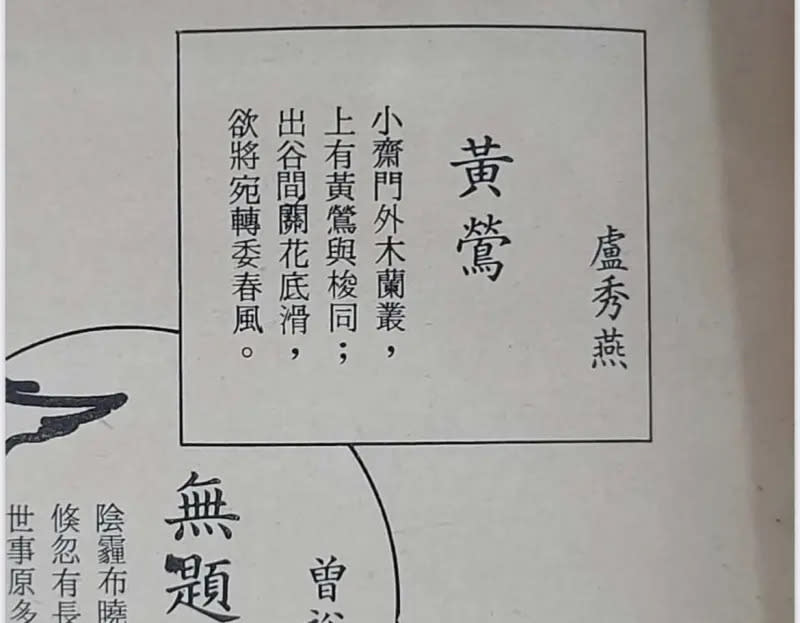 盧秀燕
黃鶯
小齋門外木蘭叢，
上有黃鶯與梭同；
出谷間關花底滑，
欲將宛轉委春風。
曾
無題
陰霾布曉
倏忽有長
世事原多